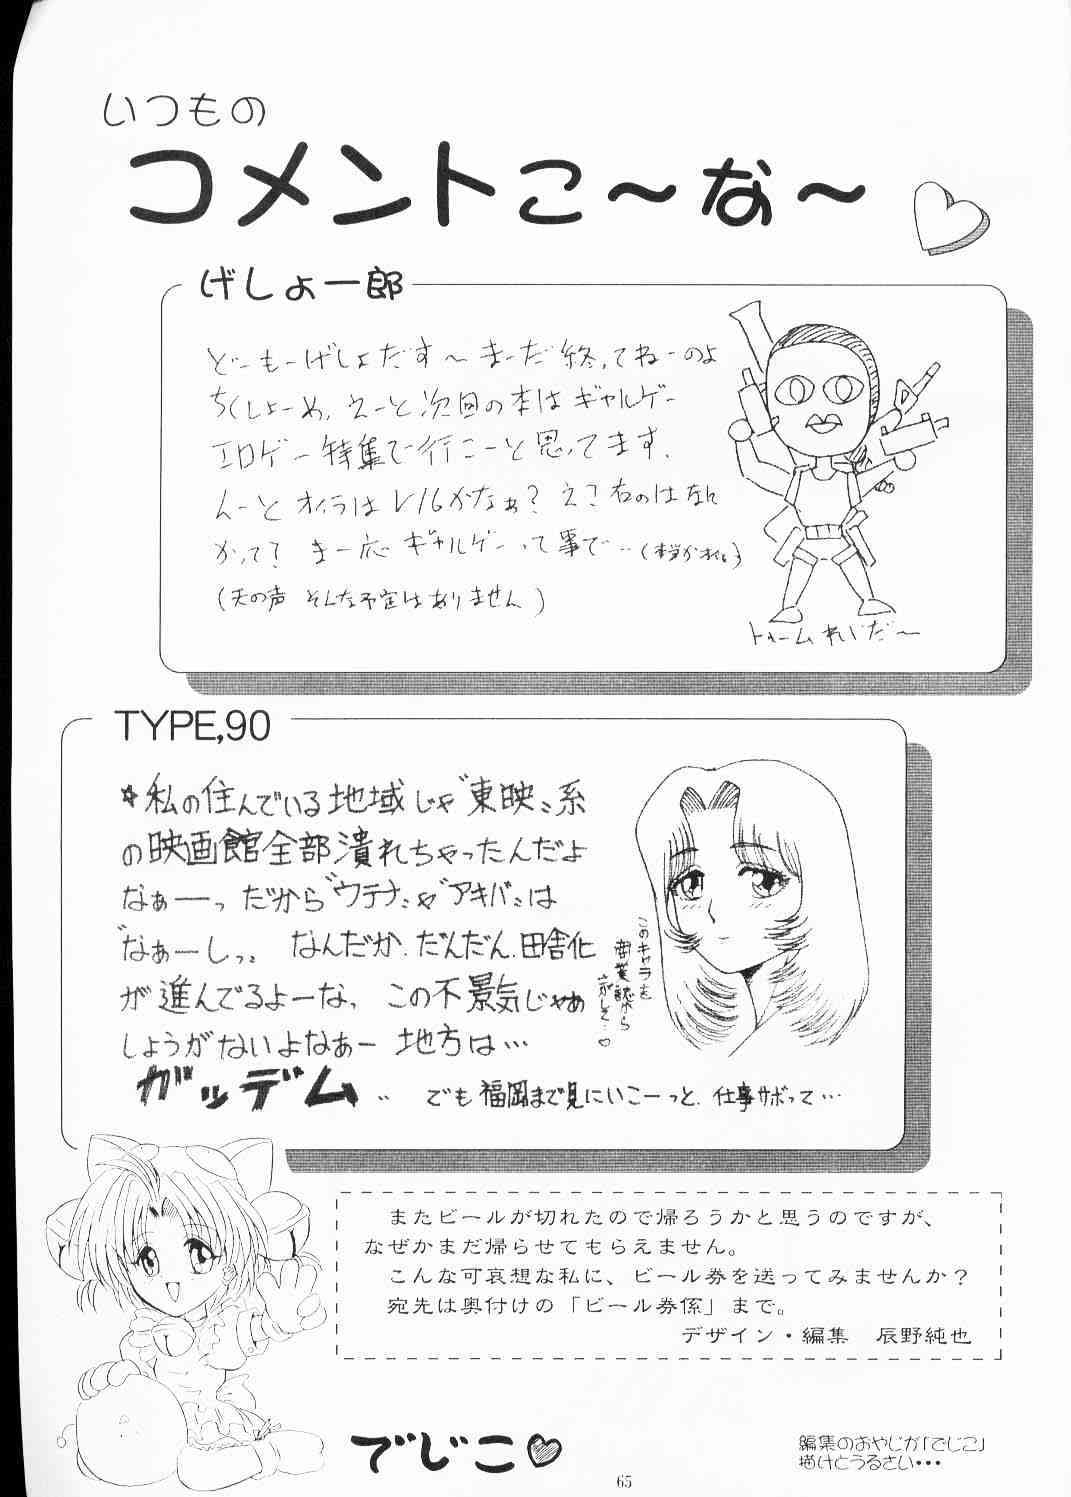 いつもの
コメントこ～な～
げしょ一郎
どーもーげしょだす～まーだ終ってねーのよ
ちくしょーめ、えーと次回の本はギャルゲー
エロゲー特集で行こーと思ってます、
んーと オイラはレ16かなぁ？えこ右のはなん
かって？まー応ギャルゲーって事で‥
(天の声 そんな予定はありません)
トゥームれいだ～
TYPE,90
★私の住んでいる地域じゃ“東映”系
の映画館全部潰れちゃったんだよ
なぁーーっ だから“ウテナ”や“アキバ”は
“なぁーしっ” なんだか、だんだん、田舎化
が進んでるよーな、この不景気じゃぁ
しょうがないよなぁー 地方は…
ガッデム‥ でも福岡まで見にいこーっと、仕事サボって…
このキャラを
商業誌から
さがしそ…♡
またビールが切れたので帰ろうかと思うのですが、
なぜかまだ帰らせてもらえません。
こんな可哀想な私に、ビール券を送ってみませんか？
宛先は奥付けの「ビール券係」まで。
デザイン・編集　辰野純也
でじこ♡
編集のおやじが「でじこ」
描けとうるさい・・・
65